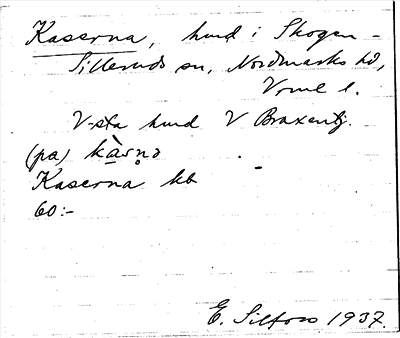 Kaserna, hmd i Skogen -
Silleruds sn, Nordmarks hd,
Vrml l.
V-sta hmd V Braxentj.
(pa) kàsṇɔ
Kaserna kb -
60:-
E. Silfors 1937.